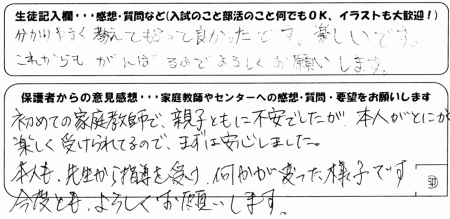 生徒記入欄・・・感想・質問など(入試のこと部活のこと何でもOK、イラストも大歓迎!)
分かりやすく教えてもらって良かったです。楽しいです。
これからもがんばるのでよろしくお願いします。
保護者からの意見感想・・・家庭教師やセンターへの感想・質問・要望をお願いします
初めての家庭教師で、親子ともに不安でしたが、本人がとにかく
楽しく受けられてるので、まずは安心しました。
本人も、先生から指導を受け、何かが変った様子です
今後とも、よろしくお願いします。
印